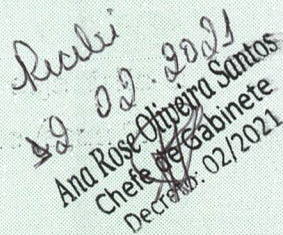 Recebi
12.02.2021
Ana Rose Oliveira Santos
Chefe de Gabinete
Decreto: 02/2021